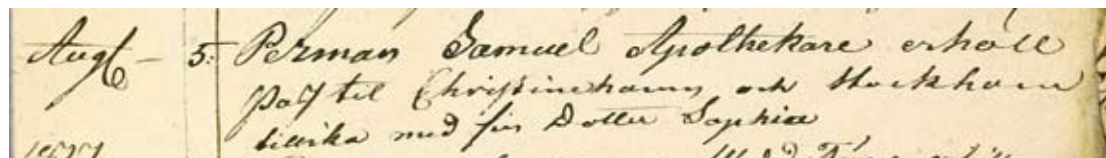 Aug – 5: Perman Samuel Apothekare erhöll
Pass til Christinehamn och Stockholm
tillika med sin Dotter Sophia